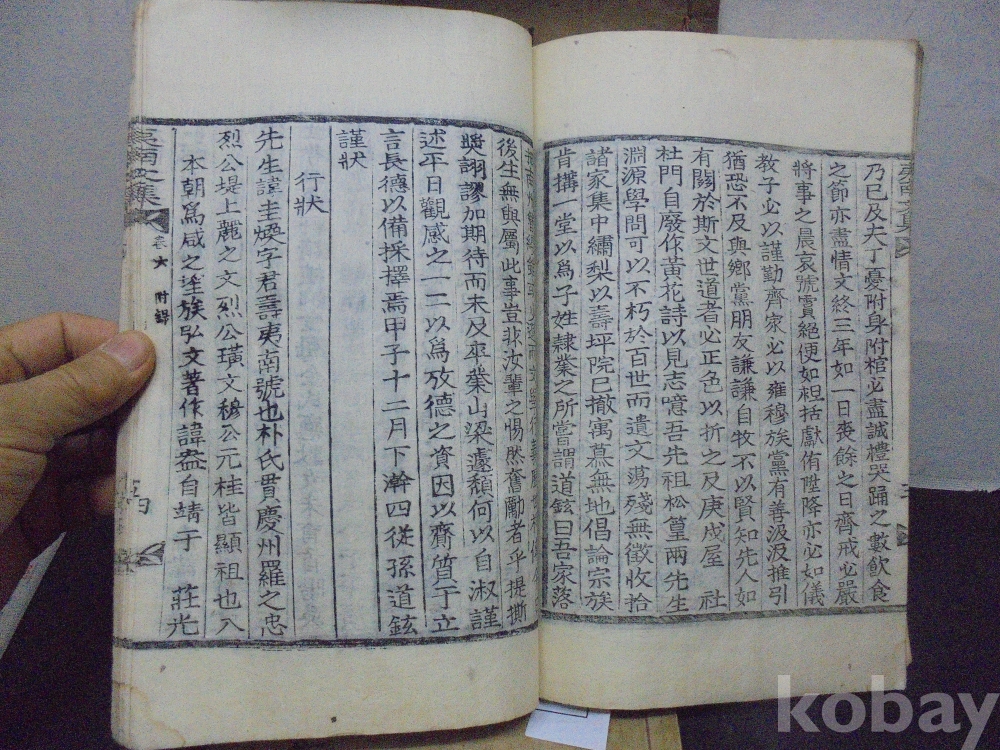 乃已及夫丁憂附身附棺必盡誠禮哭踊之數飮食
之節亦盡情文終三年如一日喪餘之日齊戒必嚴
將事之晨哀號實絕便如袒括獻侑陞降亦必如儀
敎子必以謹勤齊家必以雍穆族黨有善汲汲推引
猶恐不及與鄕黨朋友謙謙自牧不以賢知先人如
有關於斯文世道者必正色以折之及庚戌屋 社
杜門自廢作黃花詩以見志噫吾先祖松篁兩先生
淵源學問可以不朽於百世而遺文蕩殘無徵收拾
諸家集中繡梨以壽坪院已撤寓慕無地倡論宗族
肯搆一堂以爲子姓隷業之所嘗謂道鉉曰吾家落
後生無與屬此事豈非汝輩之惕然奮勵者乎提撕
奬詡謬加期待而未及卒業山梁遽頹何以自淑謹
述平日觀感之一二以爲攷德之資因以齎質于立
言長德以備採擇焉甲子十二月下澣四從孫道鉉
謹狀
行狀
先生諱圭煥字君壽夷南號也朴氏貫慶州羅之忠
烈公堤上麗之文烈公璜文穆公元桂皆顯祖也入
本朝爲咸之望族弘文著作諱盎自靖于 莊光
夷南文集
卷六 附錄
kobay